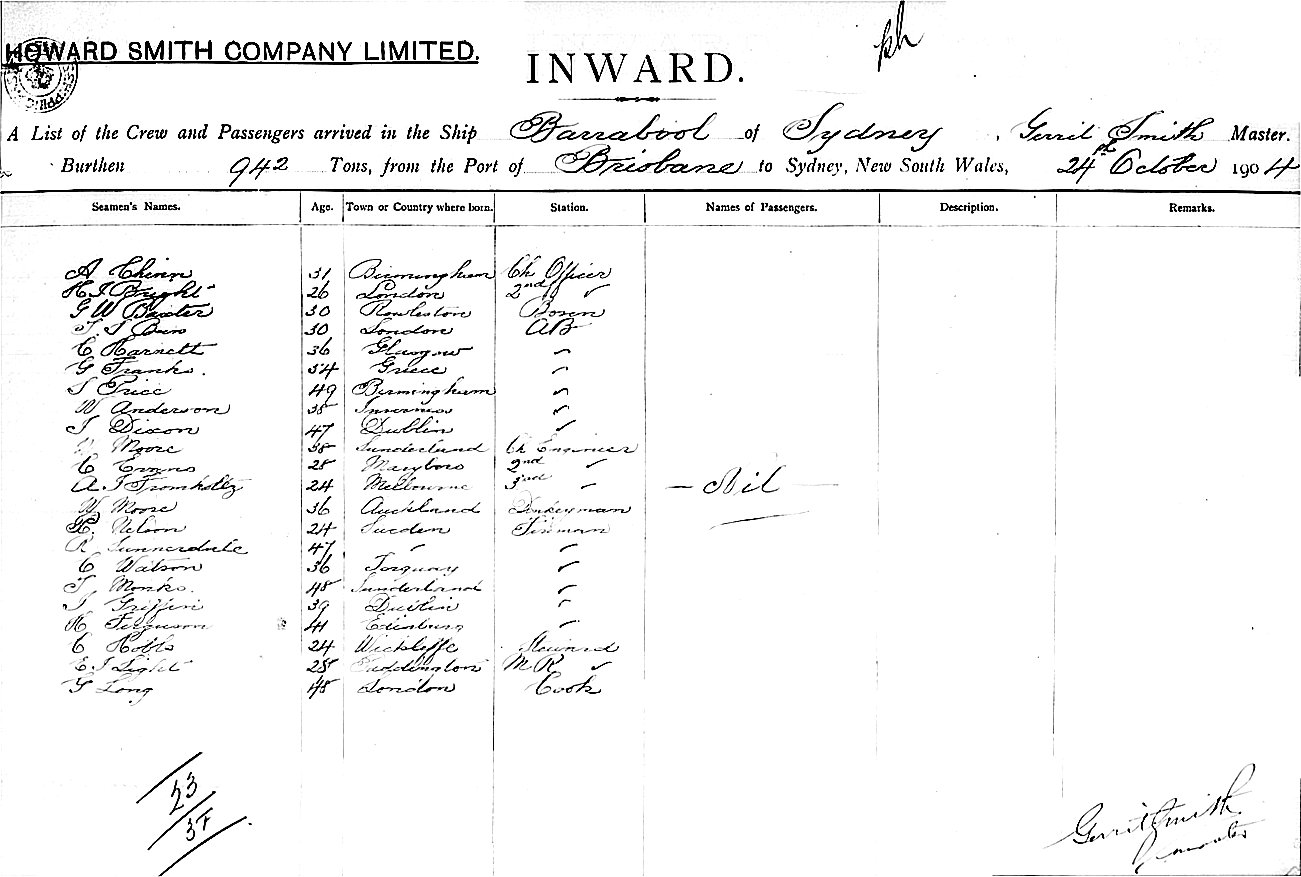 HOWARD SMITH COMPANY LIMITED.
INWARD.
A List of the Crew and Passengers arrived in the Ship Barrabool of Sydney, Gerrit Smith Master.
Burthen 942 Tons, from the Port of Brisbane to Sydney, New South Wales, 24th October 1904
Seamen's Names. Age. Town or Country where born. Station. Names of Passengers. Description. Remarks.
A Chinn 31 Birmingham Ch Officer
H J Bright 26 London 2nd "
G W Baxter 30 Rowleston Bosun
30 London AB
C Harnett 36 Glasgow "
G Franks. 34 Greece "
Price 49 Birmingham "
W Anderson 38 Inverness "
J Dixon 47 Dublin "
Moore 38 Sunderland Ch Engineer
C Evans 28 Maryboro 2nd "
A J Tromholtz 24 Melbourne 3rd "
— Nil —
W Moore 36 Auckland Donkeyman
H. Nelson 24 Sweden Fireman
R 47 " "
C Watson 36 Torquay "
T. Monks. 48 Sunderland "
J. Griffin 39 Dublin "
H Ferguson 41 Edinburg "
C Hobbs 24 Wickliffe Steward
E J Light 28 Paddington M R "
G Long 48 London Cook
23
37
Gerrit Smith
master